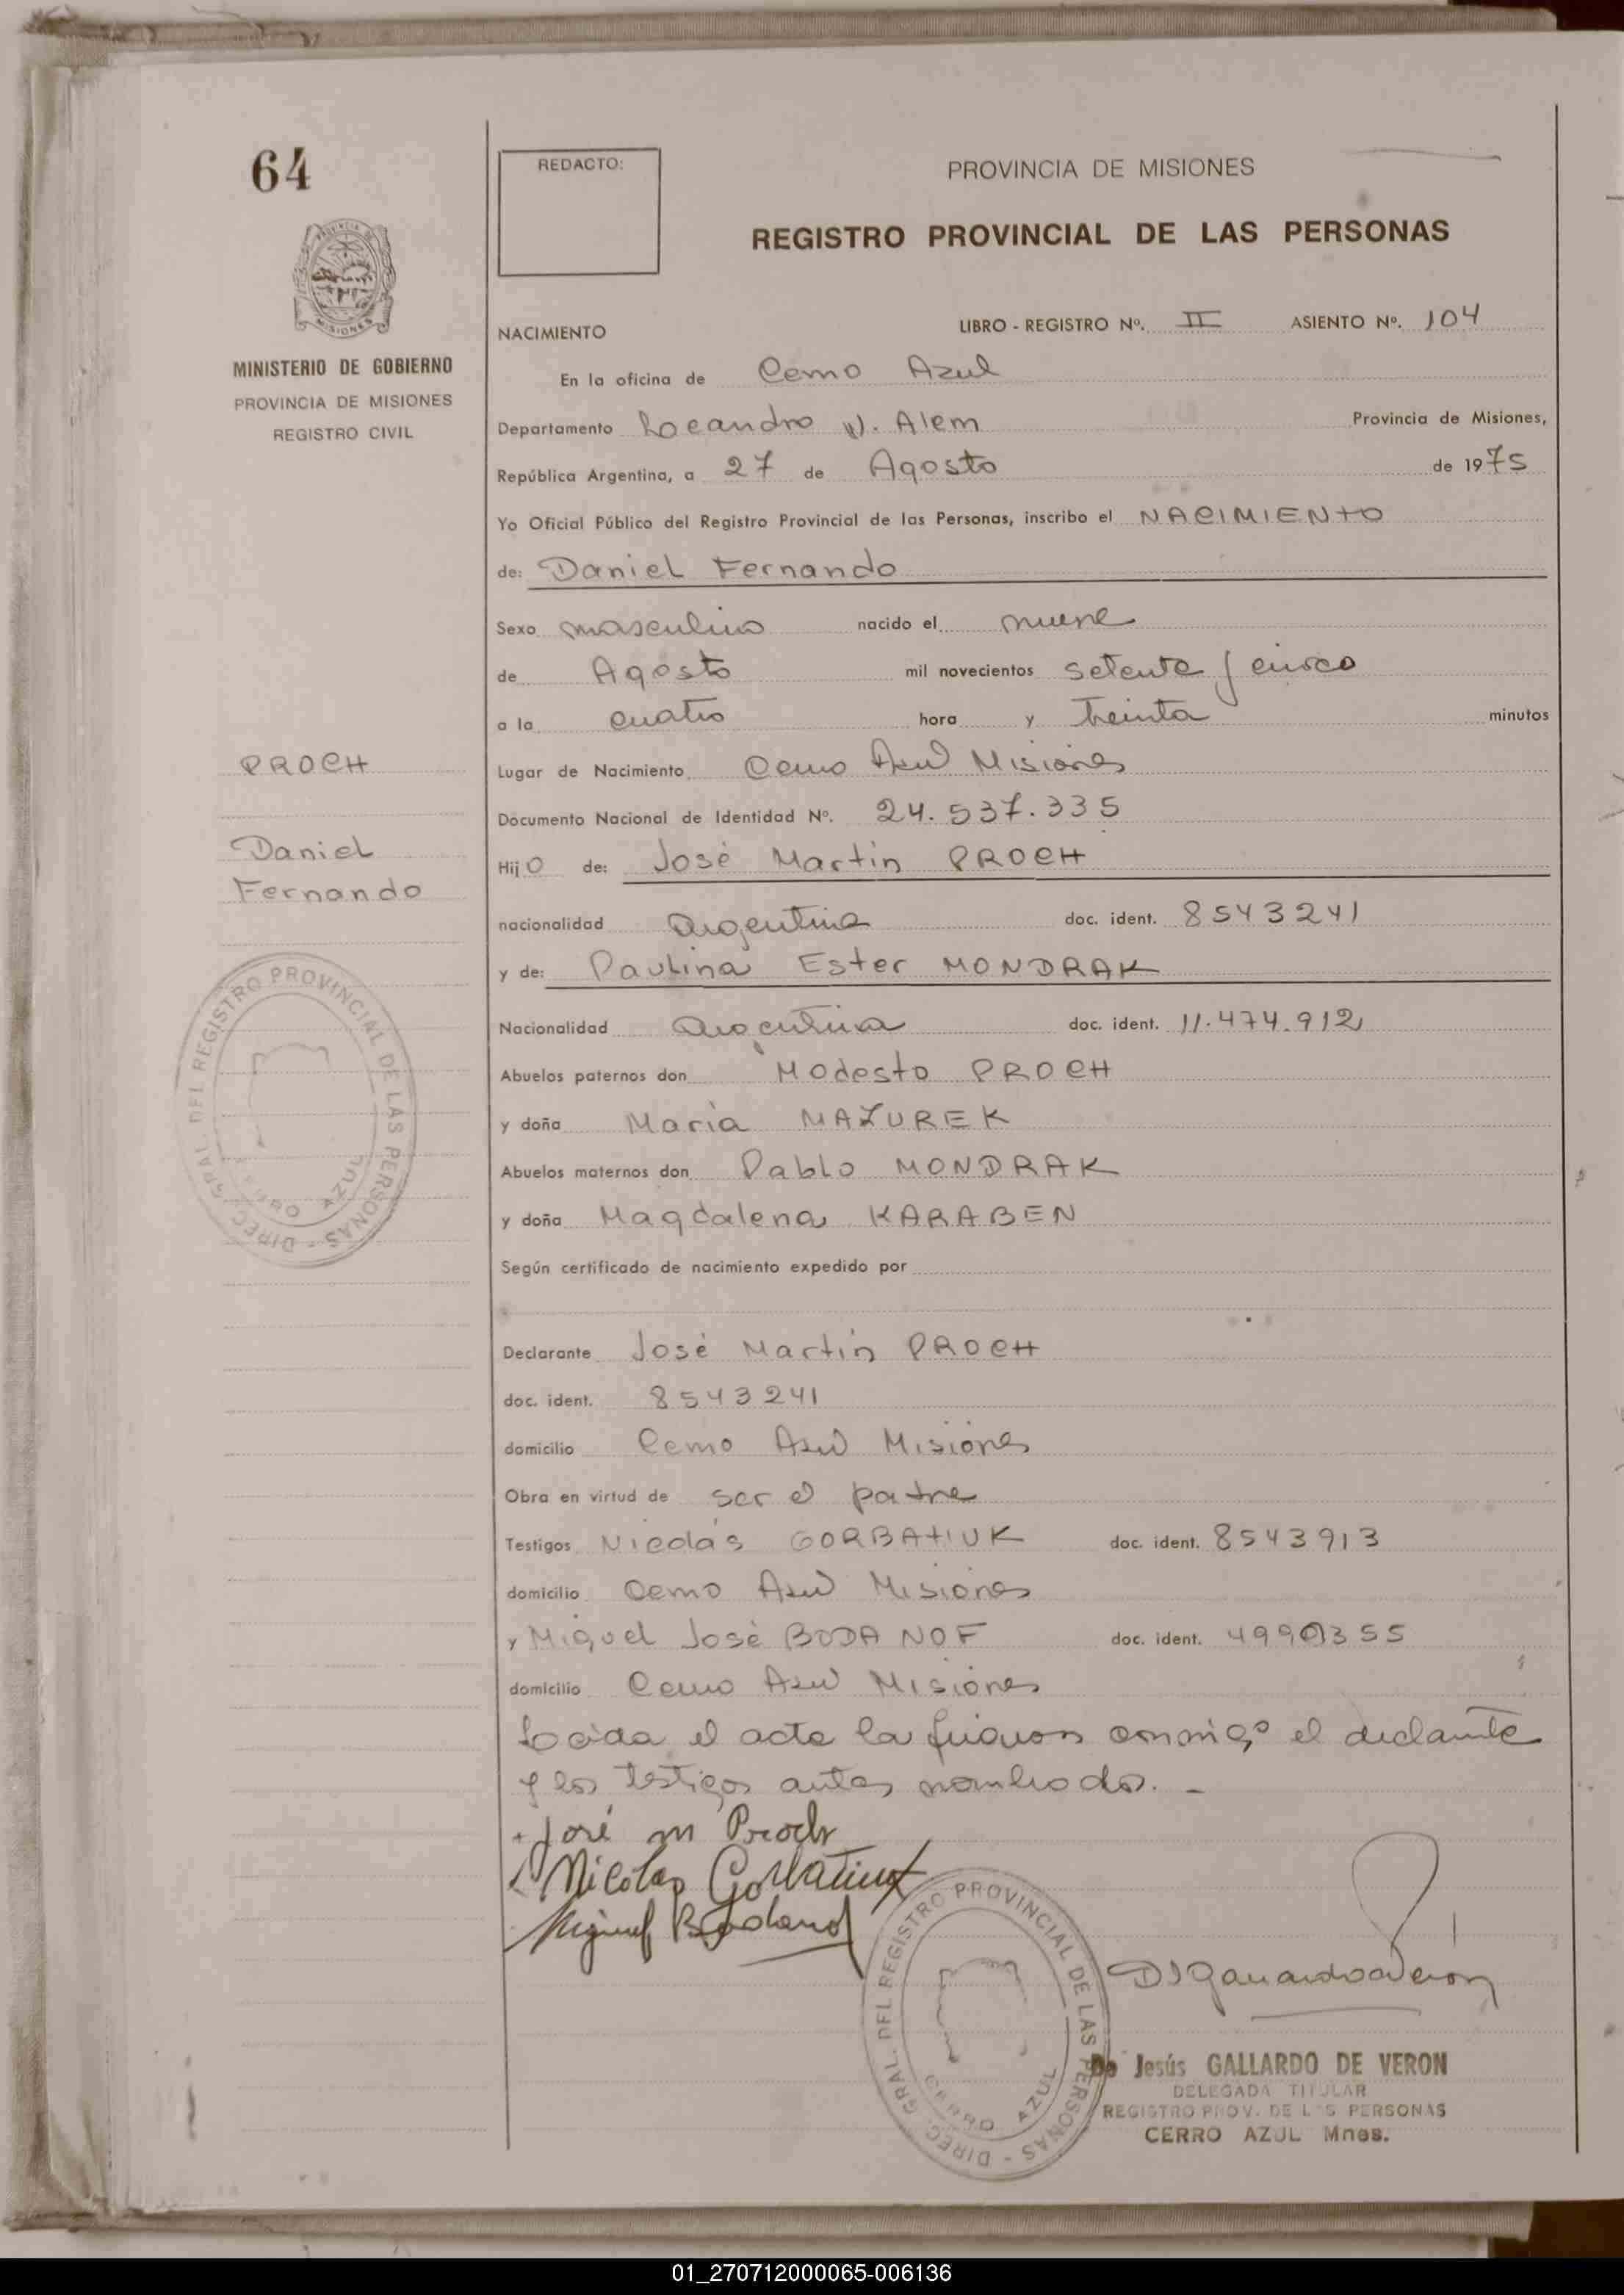 64
REDACTO:
PROVINCIA DE MISIONES
REGISTRO PROVINCIAL DE LAS PERSONAS
MISIONES
MINISTERIO DE GOBIERNO
PROVINCIA DE MISIONES
REGISTRO CIVIL
NACIMIENTO LIBRO - REGISTRO Nº. II ASIENTO Nº. 104
En la oficina de Cerro Azul
Departamento Leandro N. Alem Provincia de Misiones,
República Argentina, a 27 de Agosto de 1975
Yo Oficial Público del Registro Provincial de las Personas, inscribo el NACIMIENTO
de: Daniel Fernando
Sexo masculino nacido el nueve
de Agosto mil novecientos setenta y cinco
a la cuatro hora y treinta minutos
PROCH
Daniel
Fernando
Lugar de Nacimiento Cerro Azul Misiones
Documento Nacional de Identidad Nº. 24.537.335
Hijo de: José Martín PROCH
nacionalidad argentina doc. ident. 8543241
y de: Paulina Ester MONDRAK
Nacionalidad argentina doc. ident. 11.474.912
Abuelos paternos don Modesto PROCH
y doña María MAZUREK
Abuelos maternos don Pablo MONDRAK
y doña Magdalena KARABEN
Según certificado de nacimiento expedido por
DIREC. GRAL. DEL REGISTRO PROVINCIAL DE LAS PERSONAS -
CERRO AZUL
Declarante José Martín PROCH
doc. ident. 8543241
domicilio Cerro Azul Misiones
Obra en virtud de ser el padre
Testigos Nicolás GORBATIUK doc. ident. 8543913
domicilio Cerro Azul Misiones
y Miguel José BODANOF doc. ident.
domicilio Cerro Azul Misiones
Leída el acta la firman conmigo el declarante
y los testigos antes nombrados. -
José M Proch
Nicolas Gorbatiuk
Miguel Bodanof
DIREC. GRAL. DEL REGISTRO PROVINCIAL DE LAS PERSONAS -
CERRO AZUL
De Jesús GALLARDO DE VERON
DELEGADA TITULAR
REGISTRO PROV. DE LAS PERSONAS
CERRO AZUL Mnes.
01_270712000065-006136